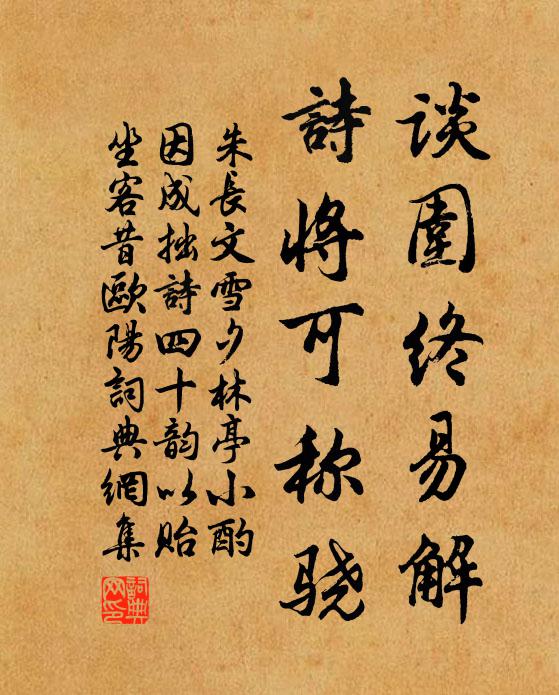 谈围终易解
詩将可称骁
朱長文雪夕林亭小酌
因成拙詩四十韵以贻
坐客昔歐陽詞典網集
詞典